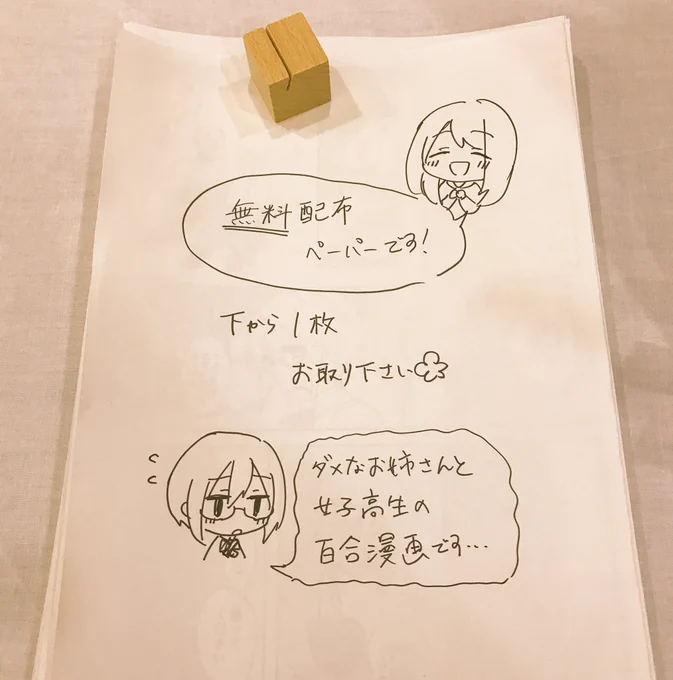 無料配布
ペーパーです!
下から1枚
お取り下さい
ダメなお姉さんと
女子高生の
百合漫画です…